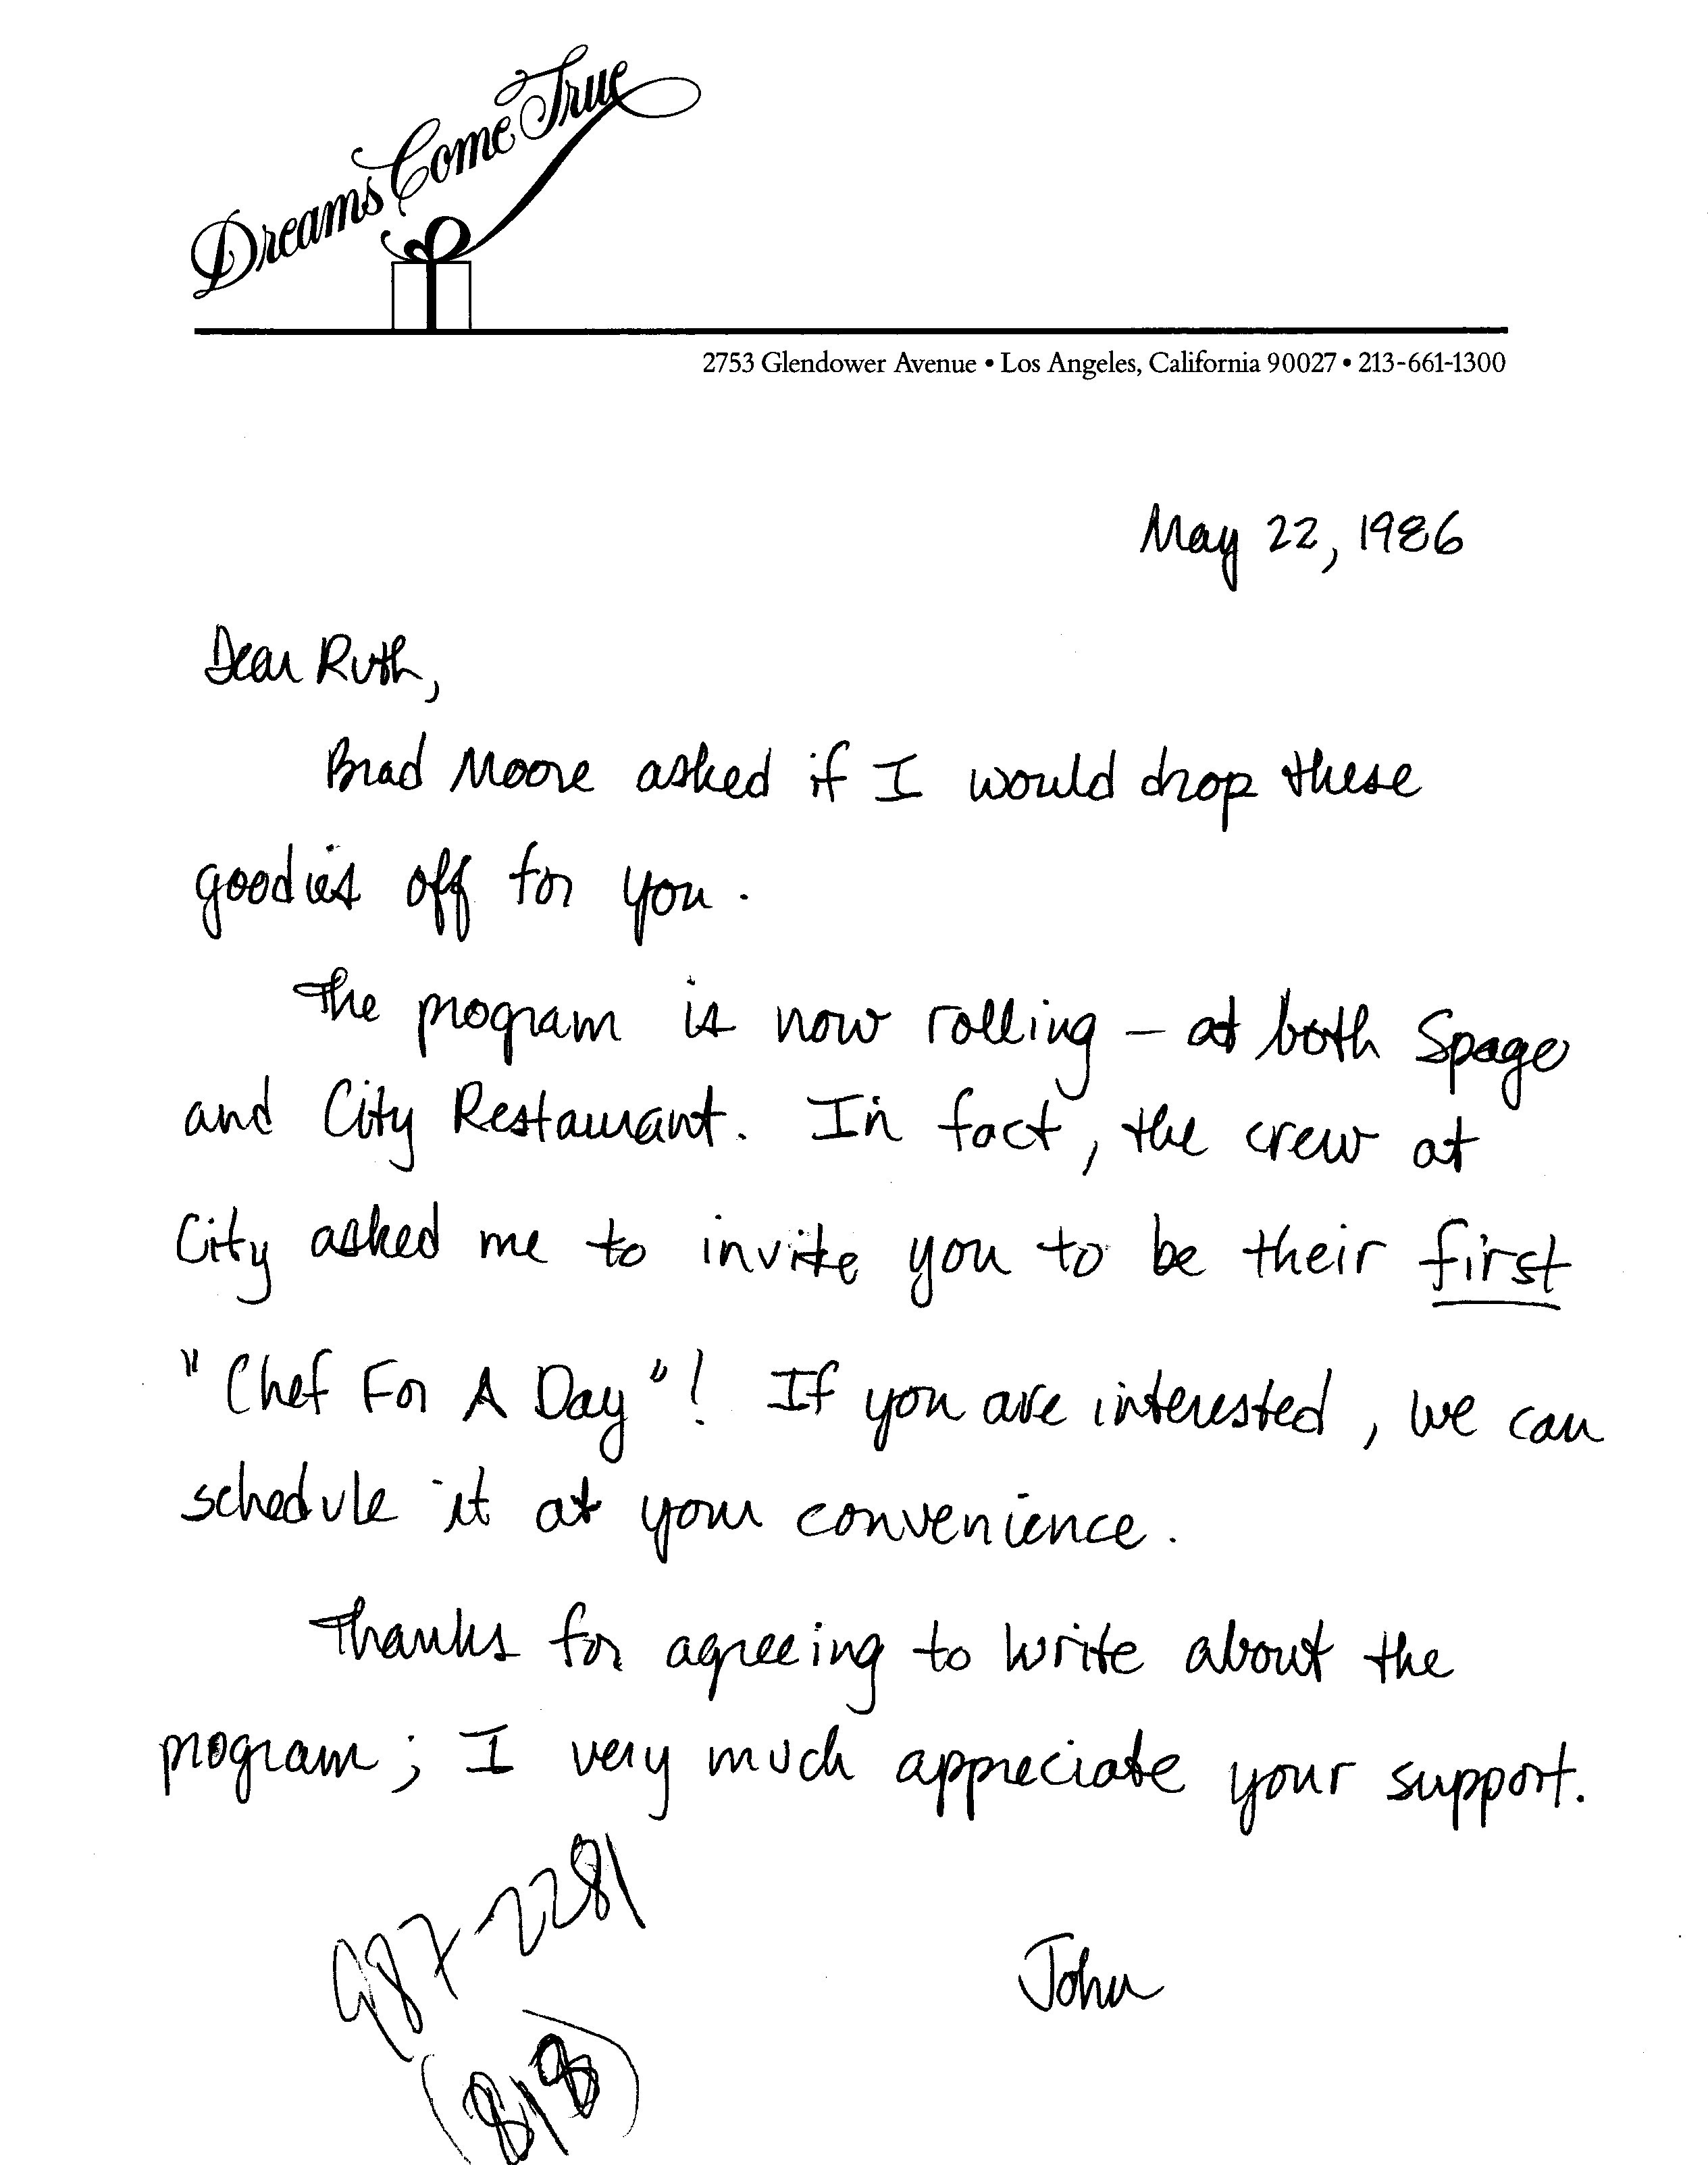 Dreams Come True
2753 Glendower Avenue • Los Angeles, California 90027 • 213-661-1300
May 22, 1986
Dear Ruth,
Brad Moore asked if I would drop these
goodies off for you.
The program is now rolling – at both Spago
and City Restaurant. In fact, the crew at
City asked me to invite you to be their first
"Chef For A Day"! If you are interested, we can
schedule it at your convenience.
Thanks for agreeing to write about the
program; I very much appreciate your support.
987-2281
(818)
John